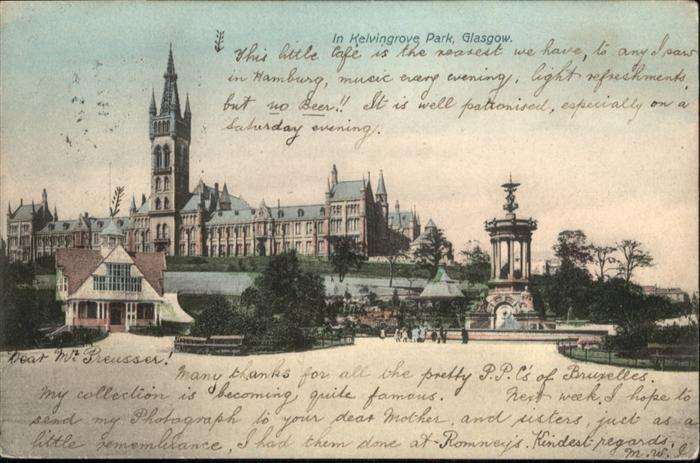 In Kelvingrove Park, Glasgow.
This little Café is the nearest we have, to any I saw
in Hamburg, music every evening, light refreshments,
but no Beer!! It is well patronised, especially on a
Saturday evening.
Dear Mr Preusser!
Many thanks for all the pretty P.P.C's of Bruxelles.
My collection is becoming quite famous. Next week, I hope to
send my Photograph to your dear Mother, and sisters, just as a
little remembrance, I had them done at Romney's. Kindest regards.
M.W.